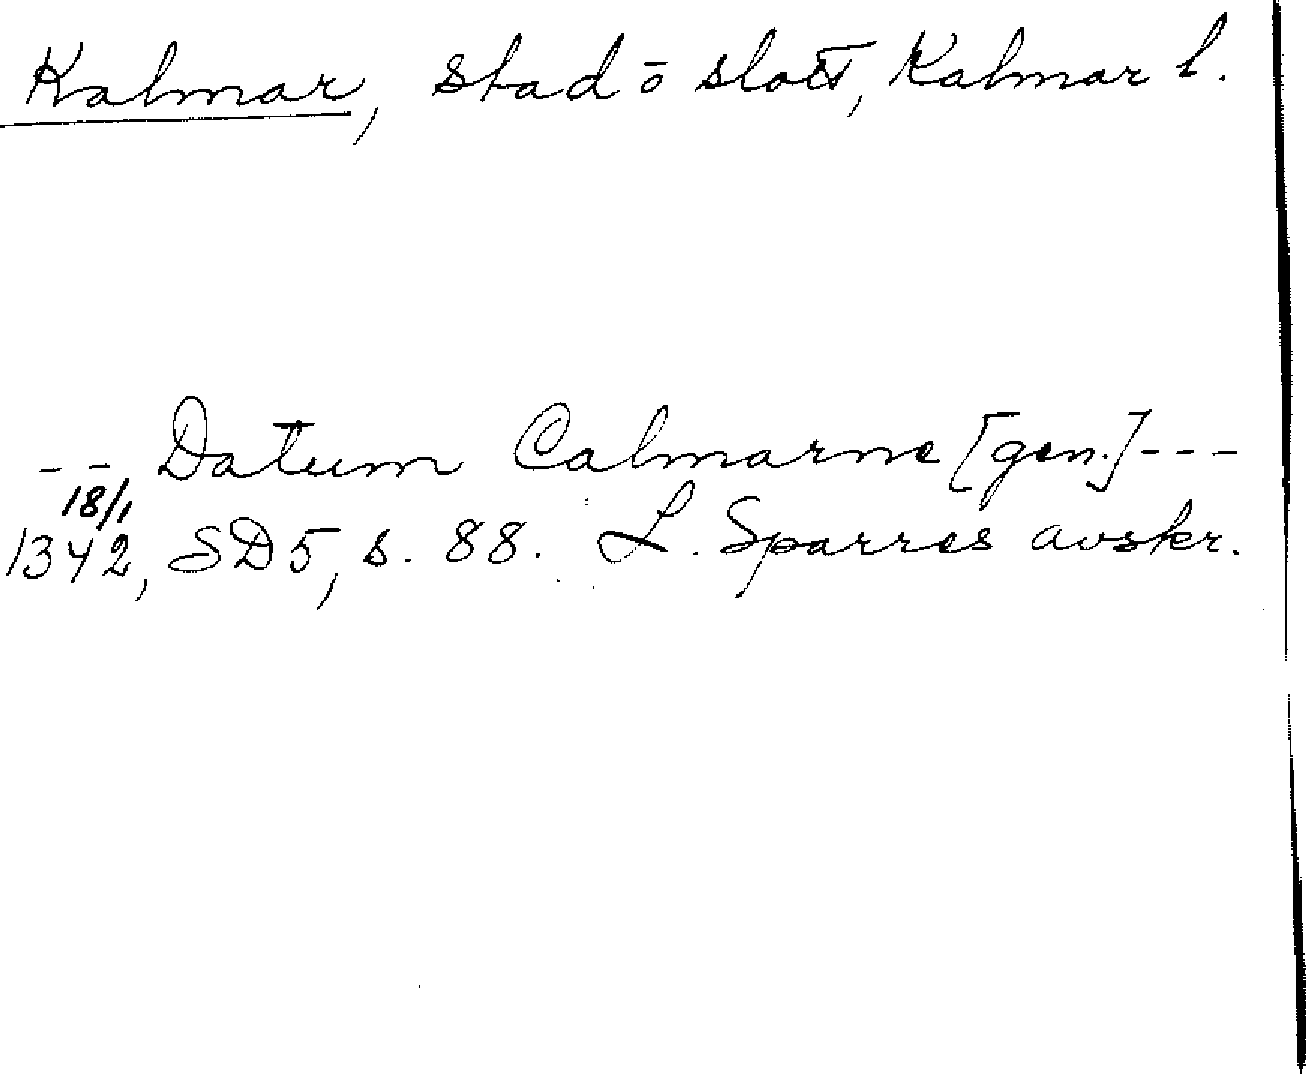 Kalmar, stad ō slott, Kalmar l.
-- Datum Calmarne [gen.]---
18/1
1342, SD5, s. 88. L. Sparres avskr.